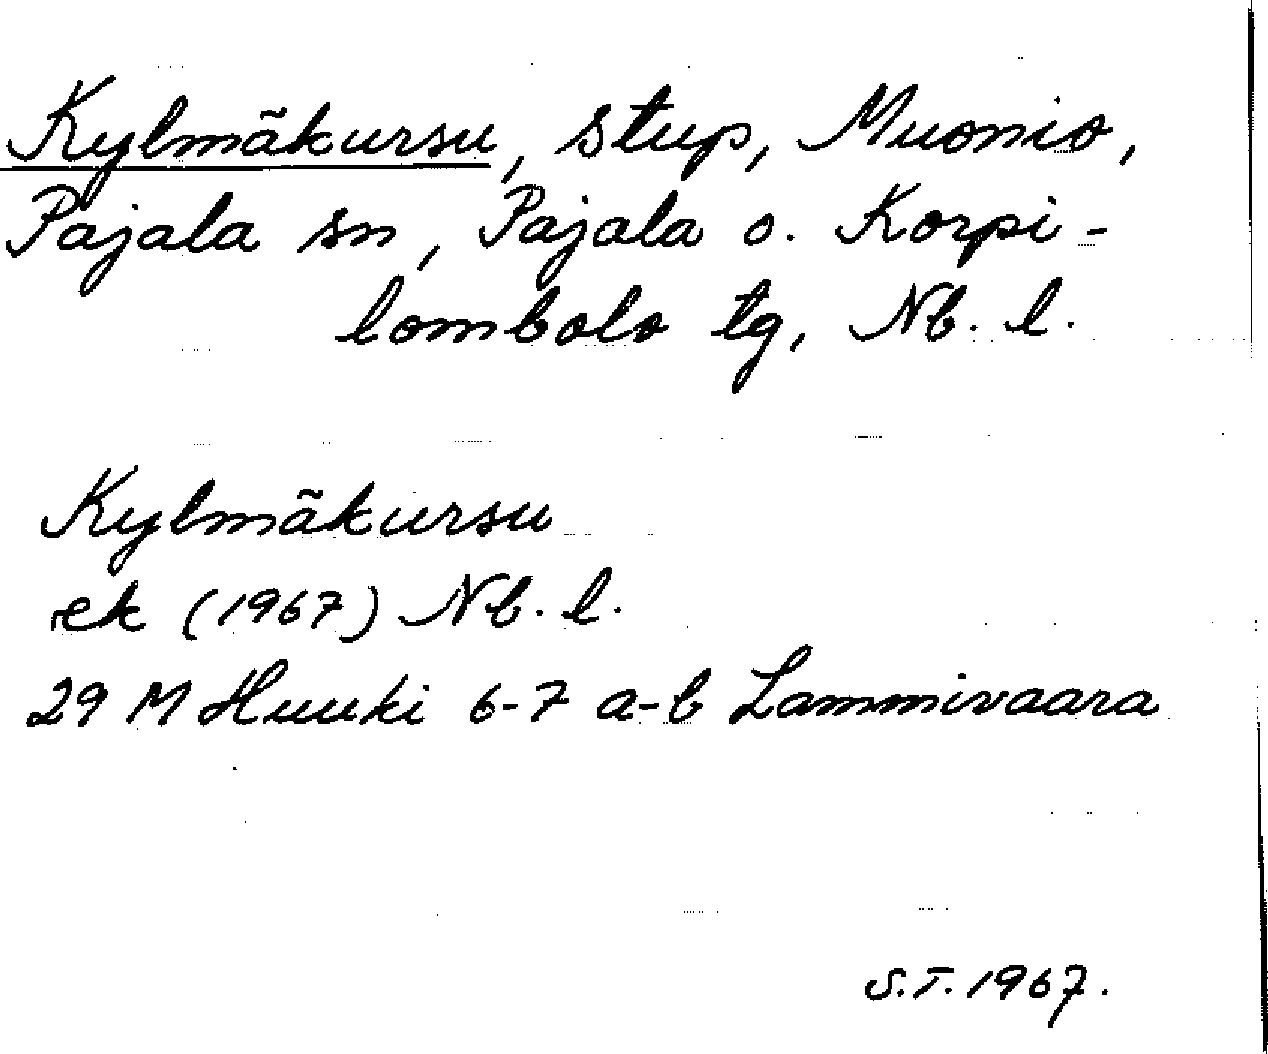 Kylmäkursu, stup, Muonio,
Pajala sn, Pajala o. Korpi-
lombolo tg, Nb. l.
Kylmäkursu
ek (1967) Nb. l.
29 M Huuki 6-7 a-b Lammivaara
S.T. 1967.